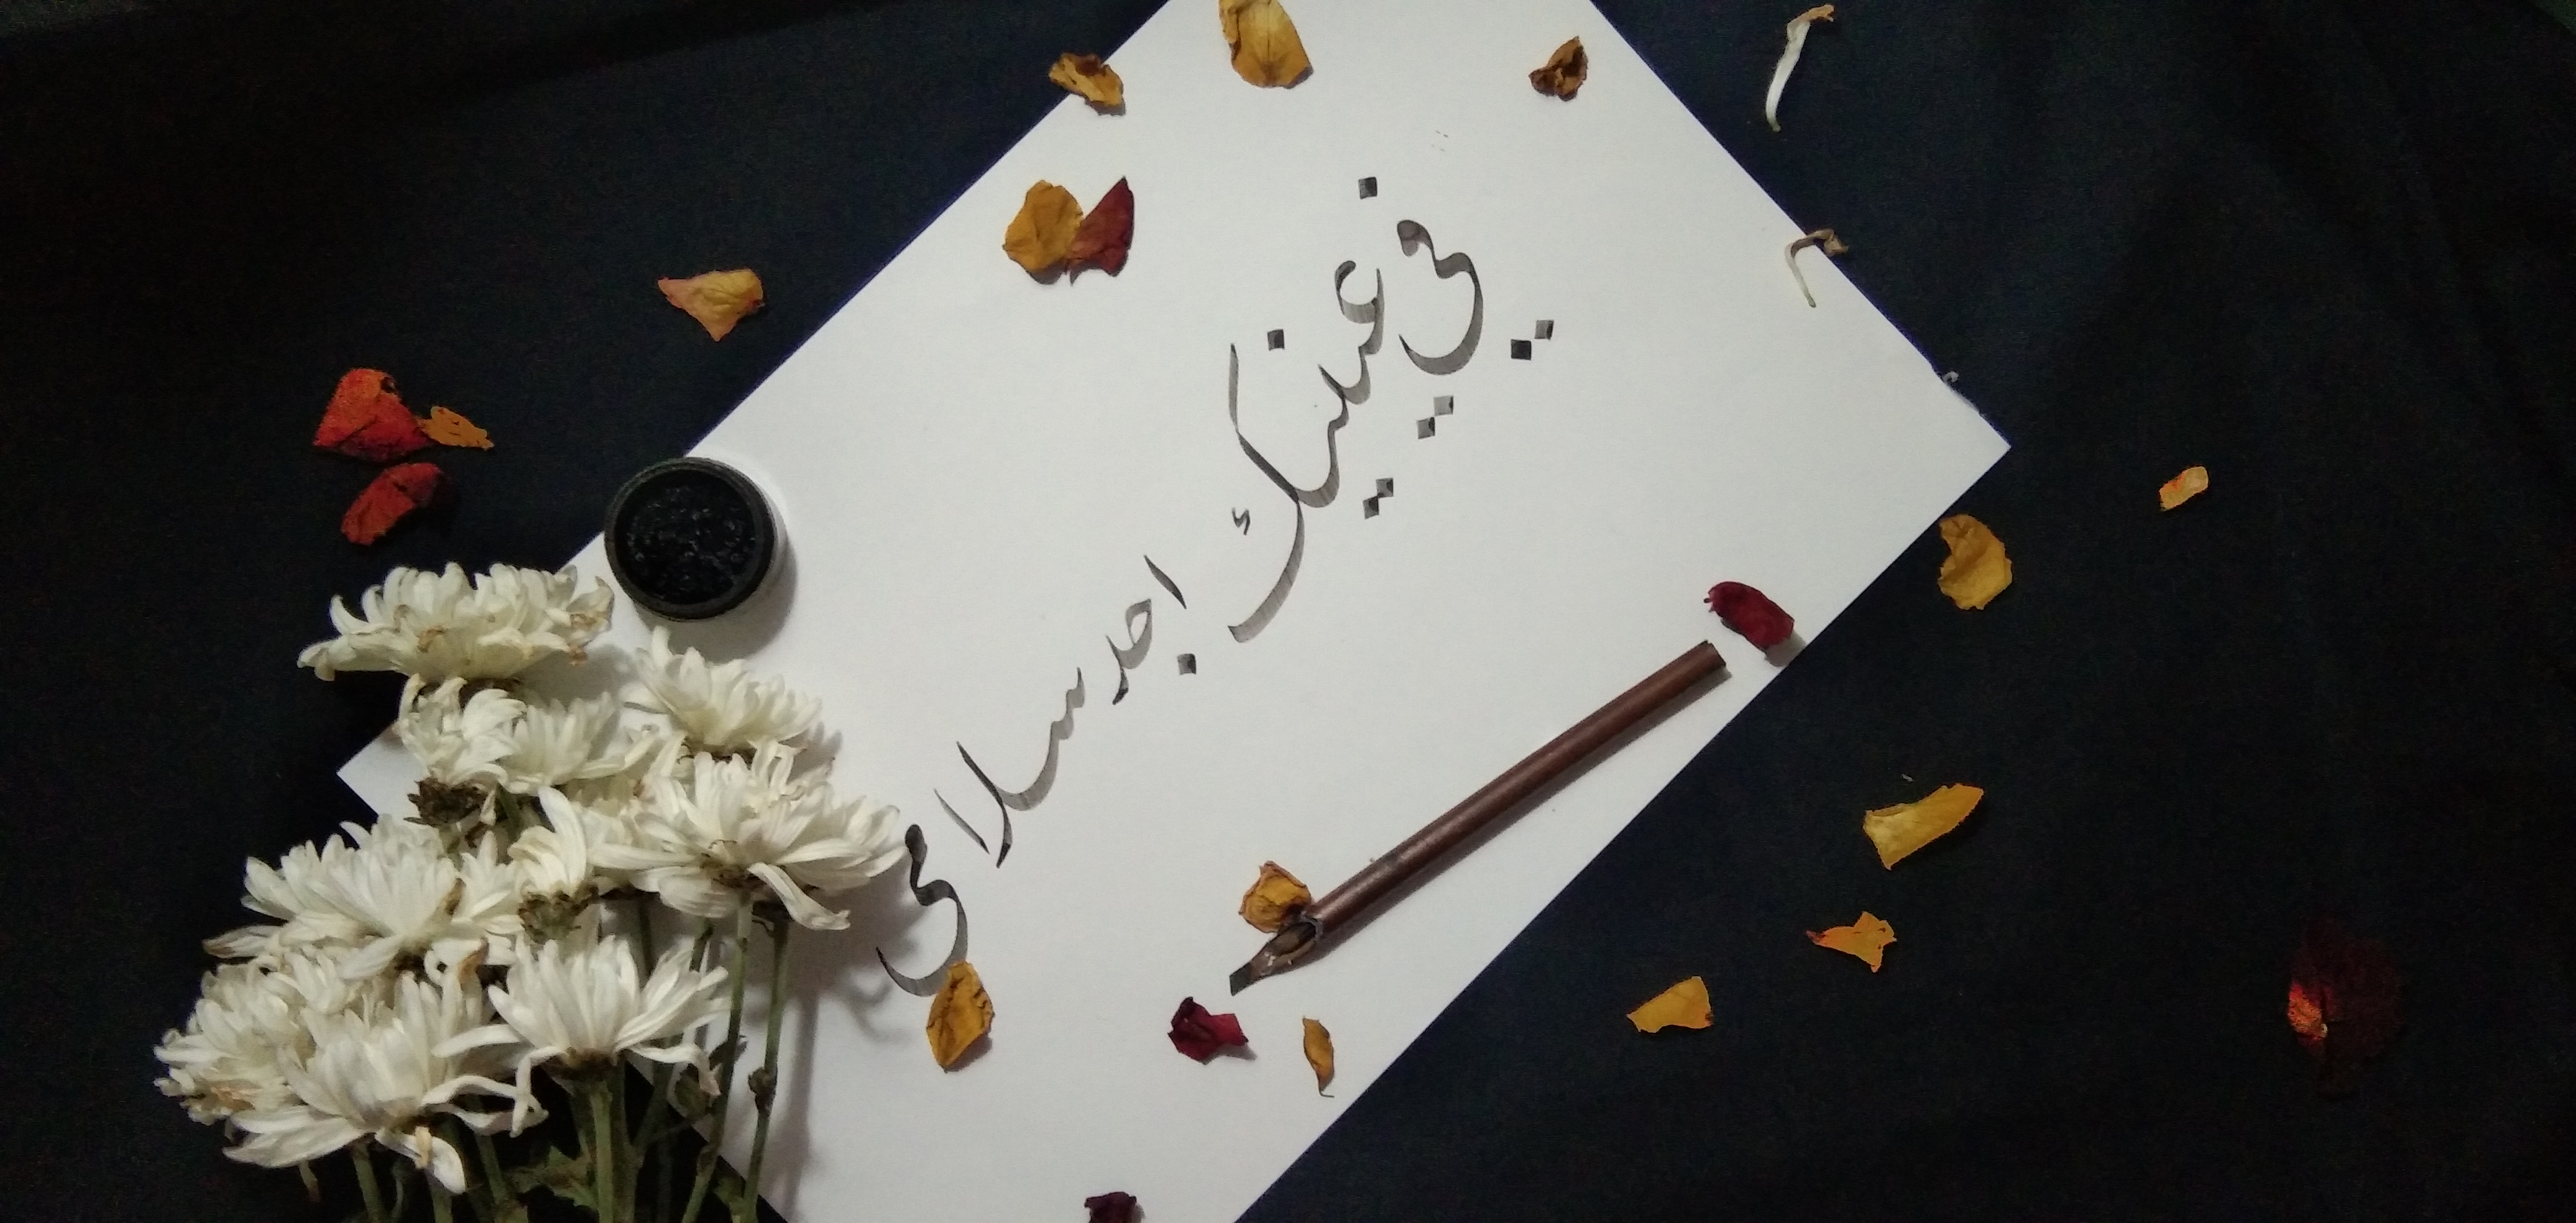 في عينيك اجد سلامي